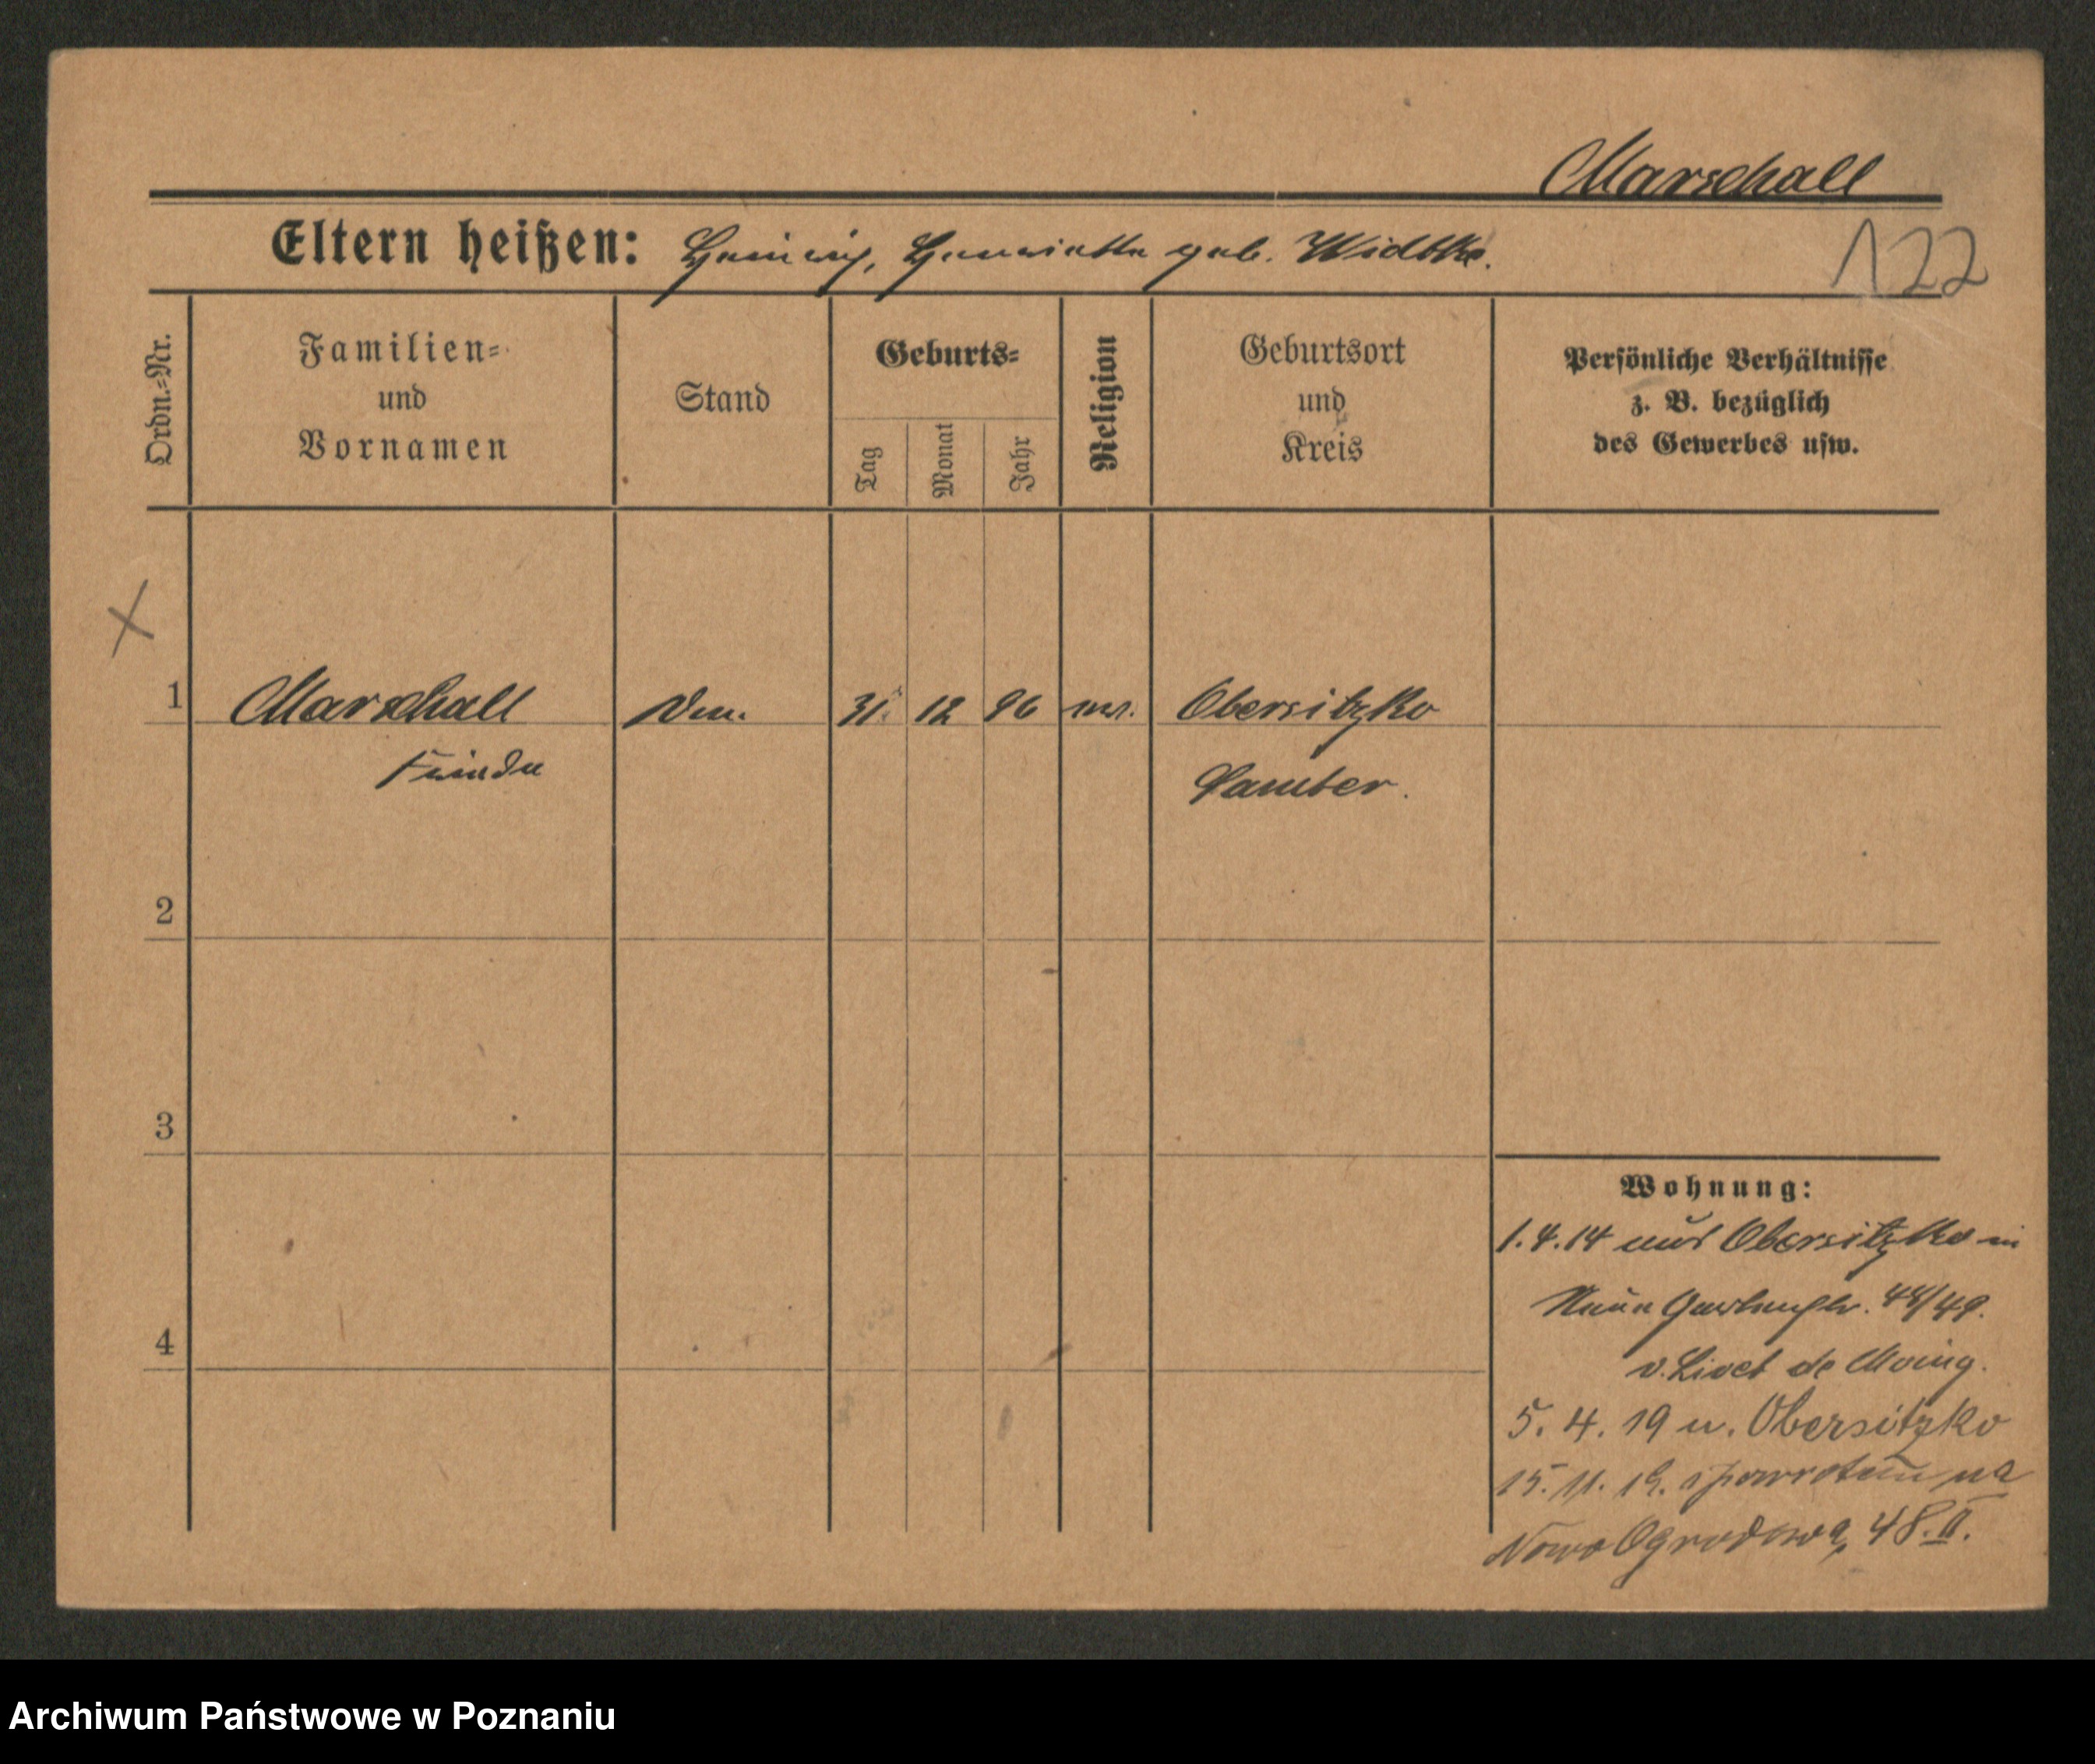 Marschall
Eltern heißen: Heinrich, Henriette geb. Widtke.
122
Ordn.=Nr.
Familien=
und
Vornamen
Stand
Geburts=
Tag
Monat
Jahr
Religion
Geburtsort
und
Kreis
Persönliche Verhältnisse
z. B. bezüglich
des Gewerbes usw.
X
1 Marschall 31. 12 96 Obersitzko
Samter.
2
3
4
Wohnung:
1.4.14 aus Obersitzko in
Neue Gartenstr. 48/49.
v. Livet de
5. 4. 19 n. Obersitzko
15. 11. 19. spowrotem na
Nowo Ogrodową 48. II.
Archiwum Państwowe w Poznaniu